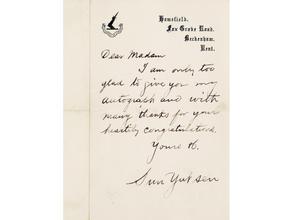 Homefield,
Fox Grove Road,
Beckenham,
Kent.
Dear Madam
I am only too
glad to give you my
autograph and with
many thanks for your
heartily congratulations.
Yours &c.
Sun Yat Sen